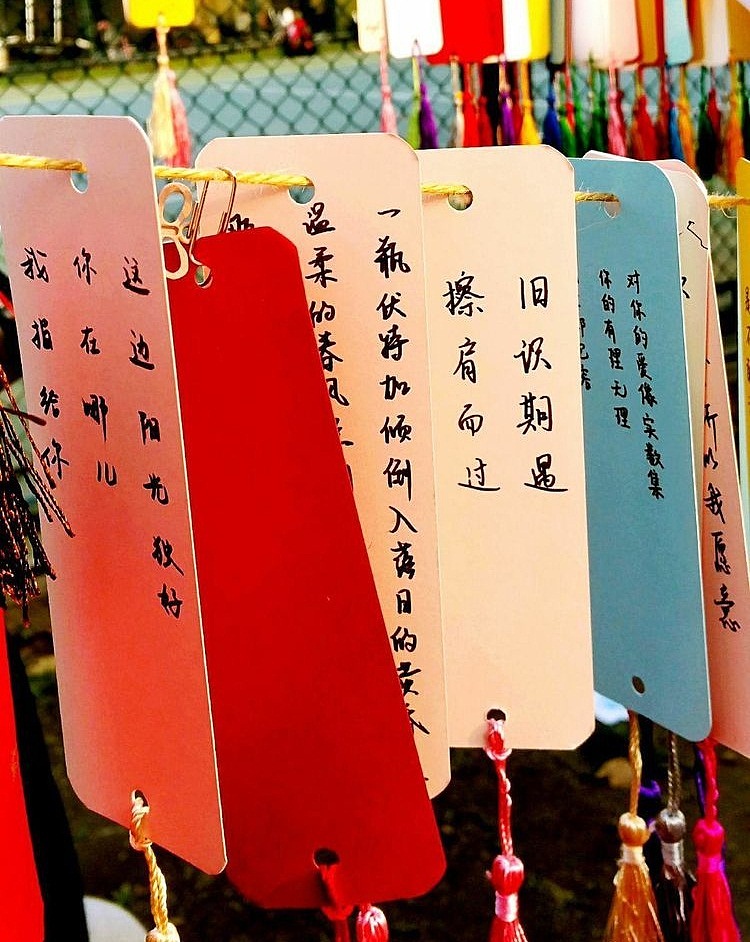 这边阳光独好
你在哪儿
我指给你
一瓶伏特加倾倒入落日的黄
温柔的春风
旧识期遇
擦肩而过
对你的爱像实数集
你的有理无理
所以我愿意